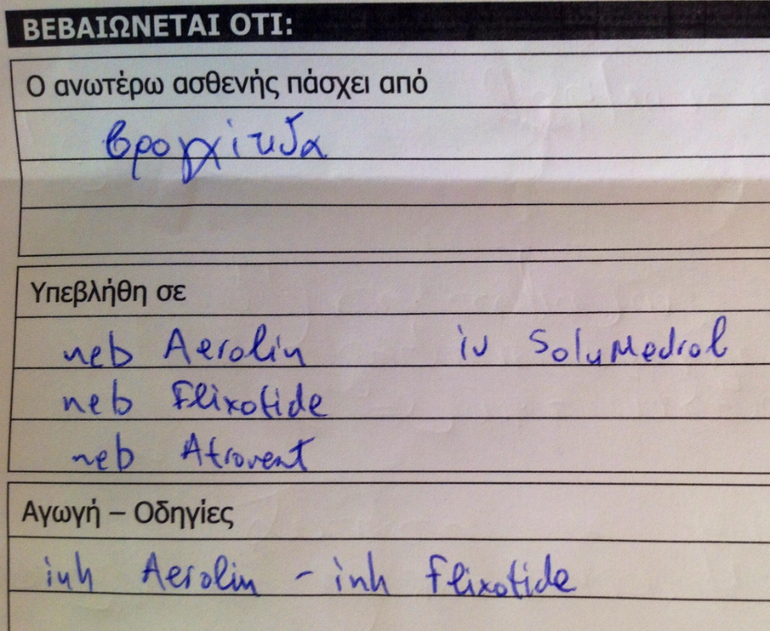 ΒΕΒΑΙΩΝΕΤΑΙ ΟΤΙ:
Ο ανωτέρω ασθενής πάσχει από
βρογχίτιδα
Υπεβλήθη σε
neb Aerolin iv SoluMedrol
neb Flixotide
neb Atrovent
Αγωγή – Οδηγίες
inh Aerolin - inh Flixotide